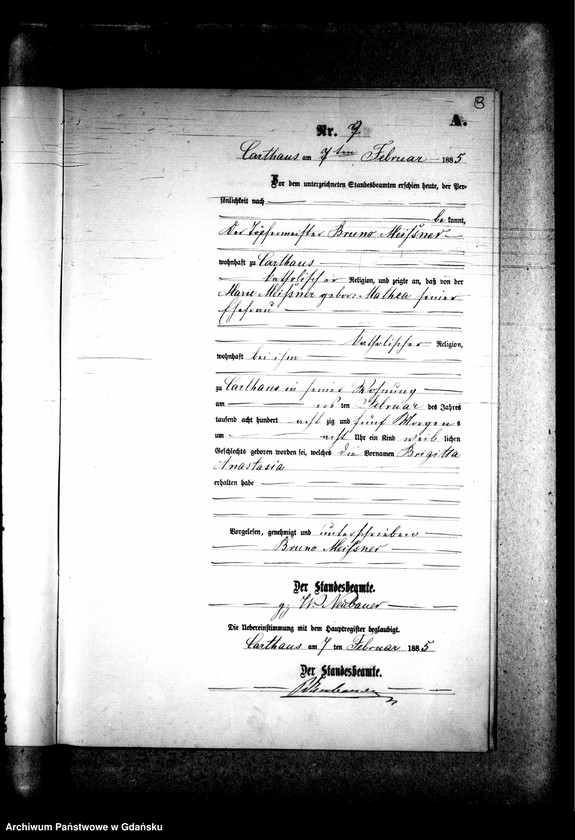 8
A.
Nr. 7
Carthaus am 7ten Februar 1885
Vor dem unterzeichneten Standesbeamten erschien heute, der Per-
sönlichkeit nach
be kannt,
der Töpfermeister Bruno Meißner
wohnhaft zu Carthaus
katholischer Religion, und zeigte an, daß von der
Marie Meißner geborne Mathea seiner
Ehefrau
katholischer Religion,
wohnhaft bei ihm
zu Carthaus in seiner Wohnung
am ten Februar des Jahres
tausend acht hundert acht zig und fünf Morgens
um acht Uhr ein Kind weib lichen
Geschlechts geboren worden sei, welches die Vornamen Brigitta
Anastasia
erhalten habe
Vorgelesen, genehmigt und unterschrieben
Bruno Meißner
Der Standesbeamte.
gz W. Neubauer
Die Uebereinstimmung mit dem Hauptregister beglaubigt.
Carthaus am 7 ten Februar 1885
Der Standesbeamte.
Neubauer
Archiwum Państwowe w Gdańsku